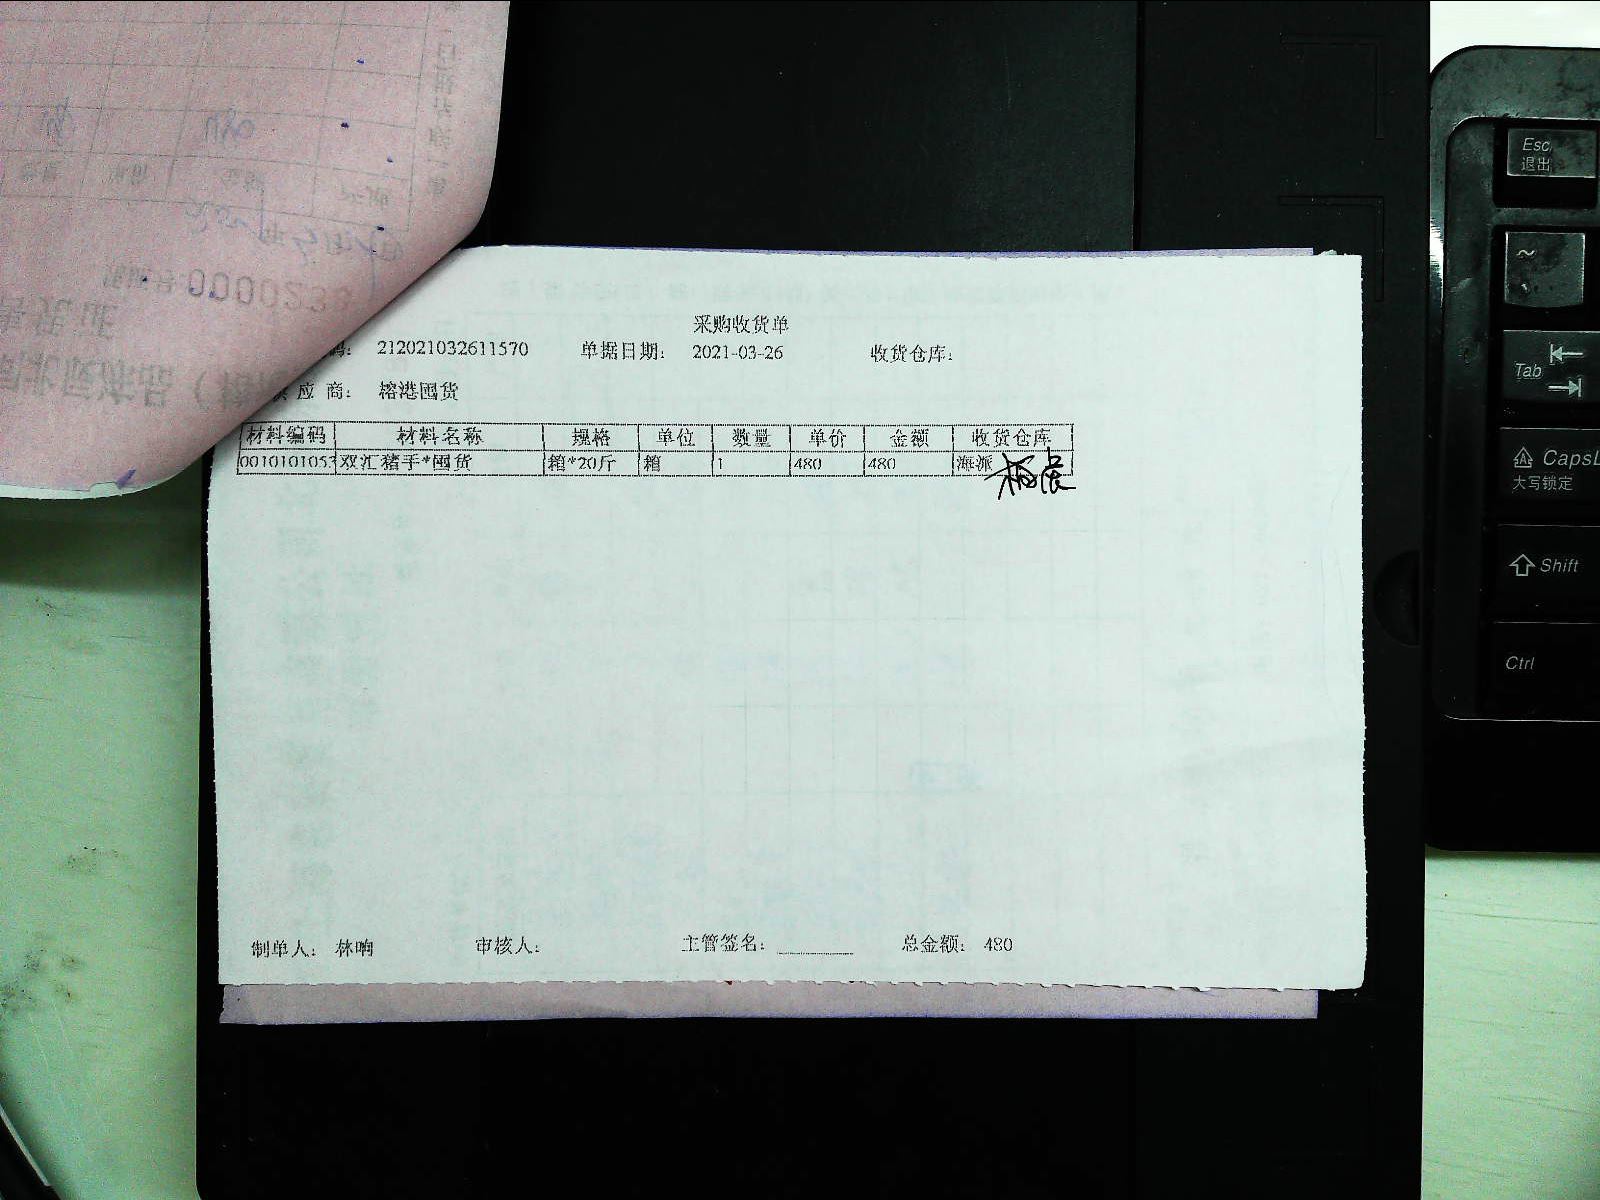 采购收货单
码: 212021032611570 单据日期: 2021-03-26 收货仓库:
应 商: 榕港囤货
材料编码 材料名称 规格 单位 数量 单价 金额 收货仓库
0010101053 双汇猪手*囤货 箱*20斤 箱 1 480 480 海派
制单人: 林响 审核人: 主管签名: 总金额: 480
0000233
Esc
退出
~
Tab
CapsL
大写锁定
Shift
Ctrl